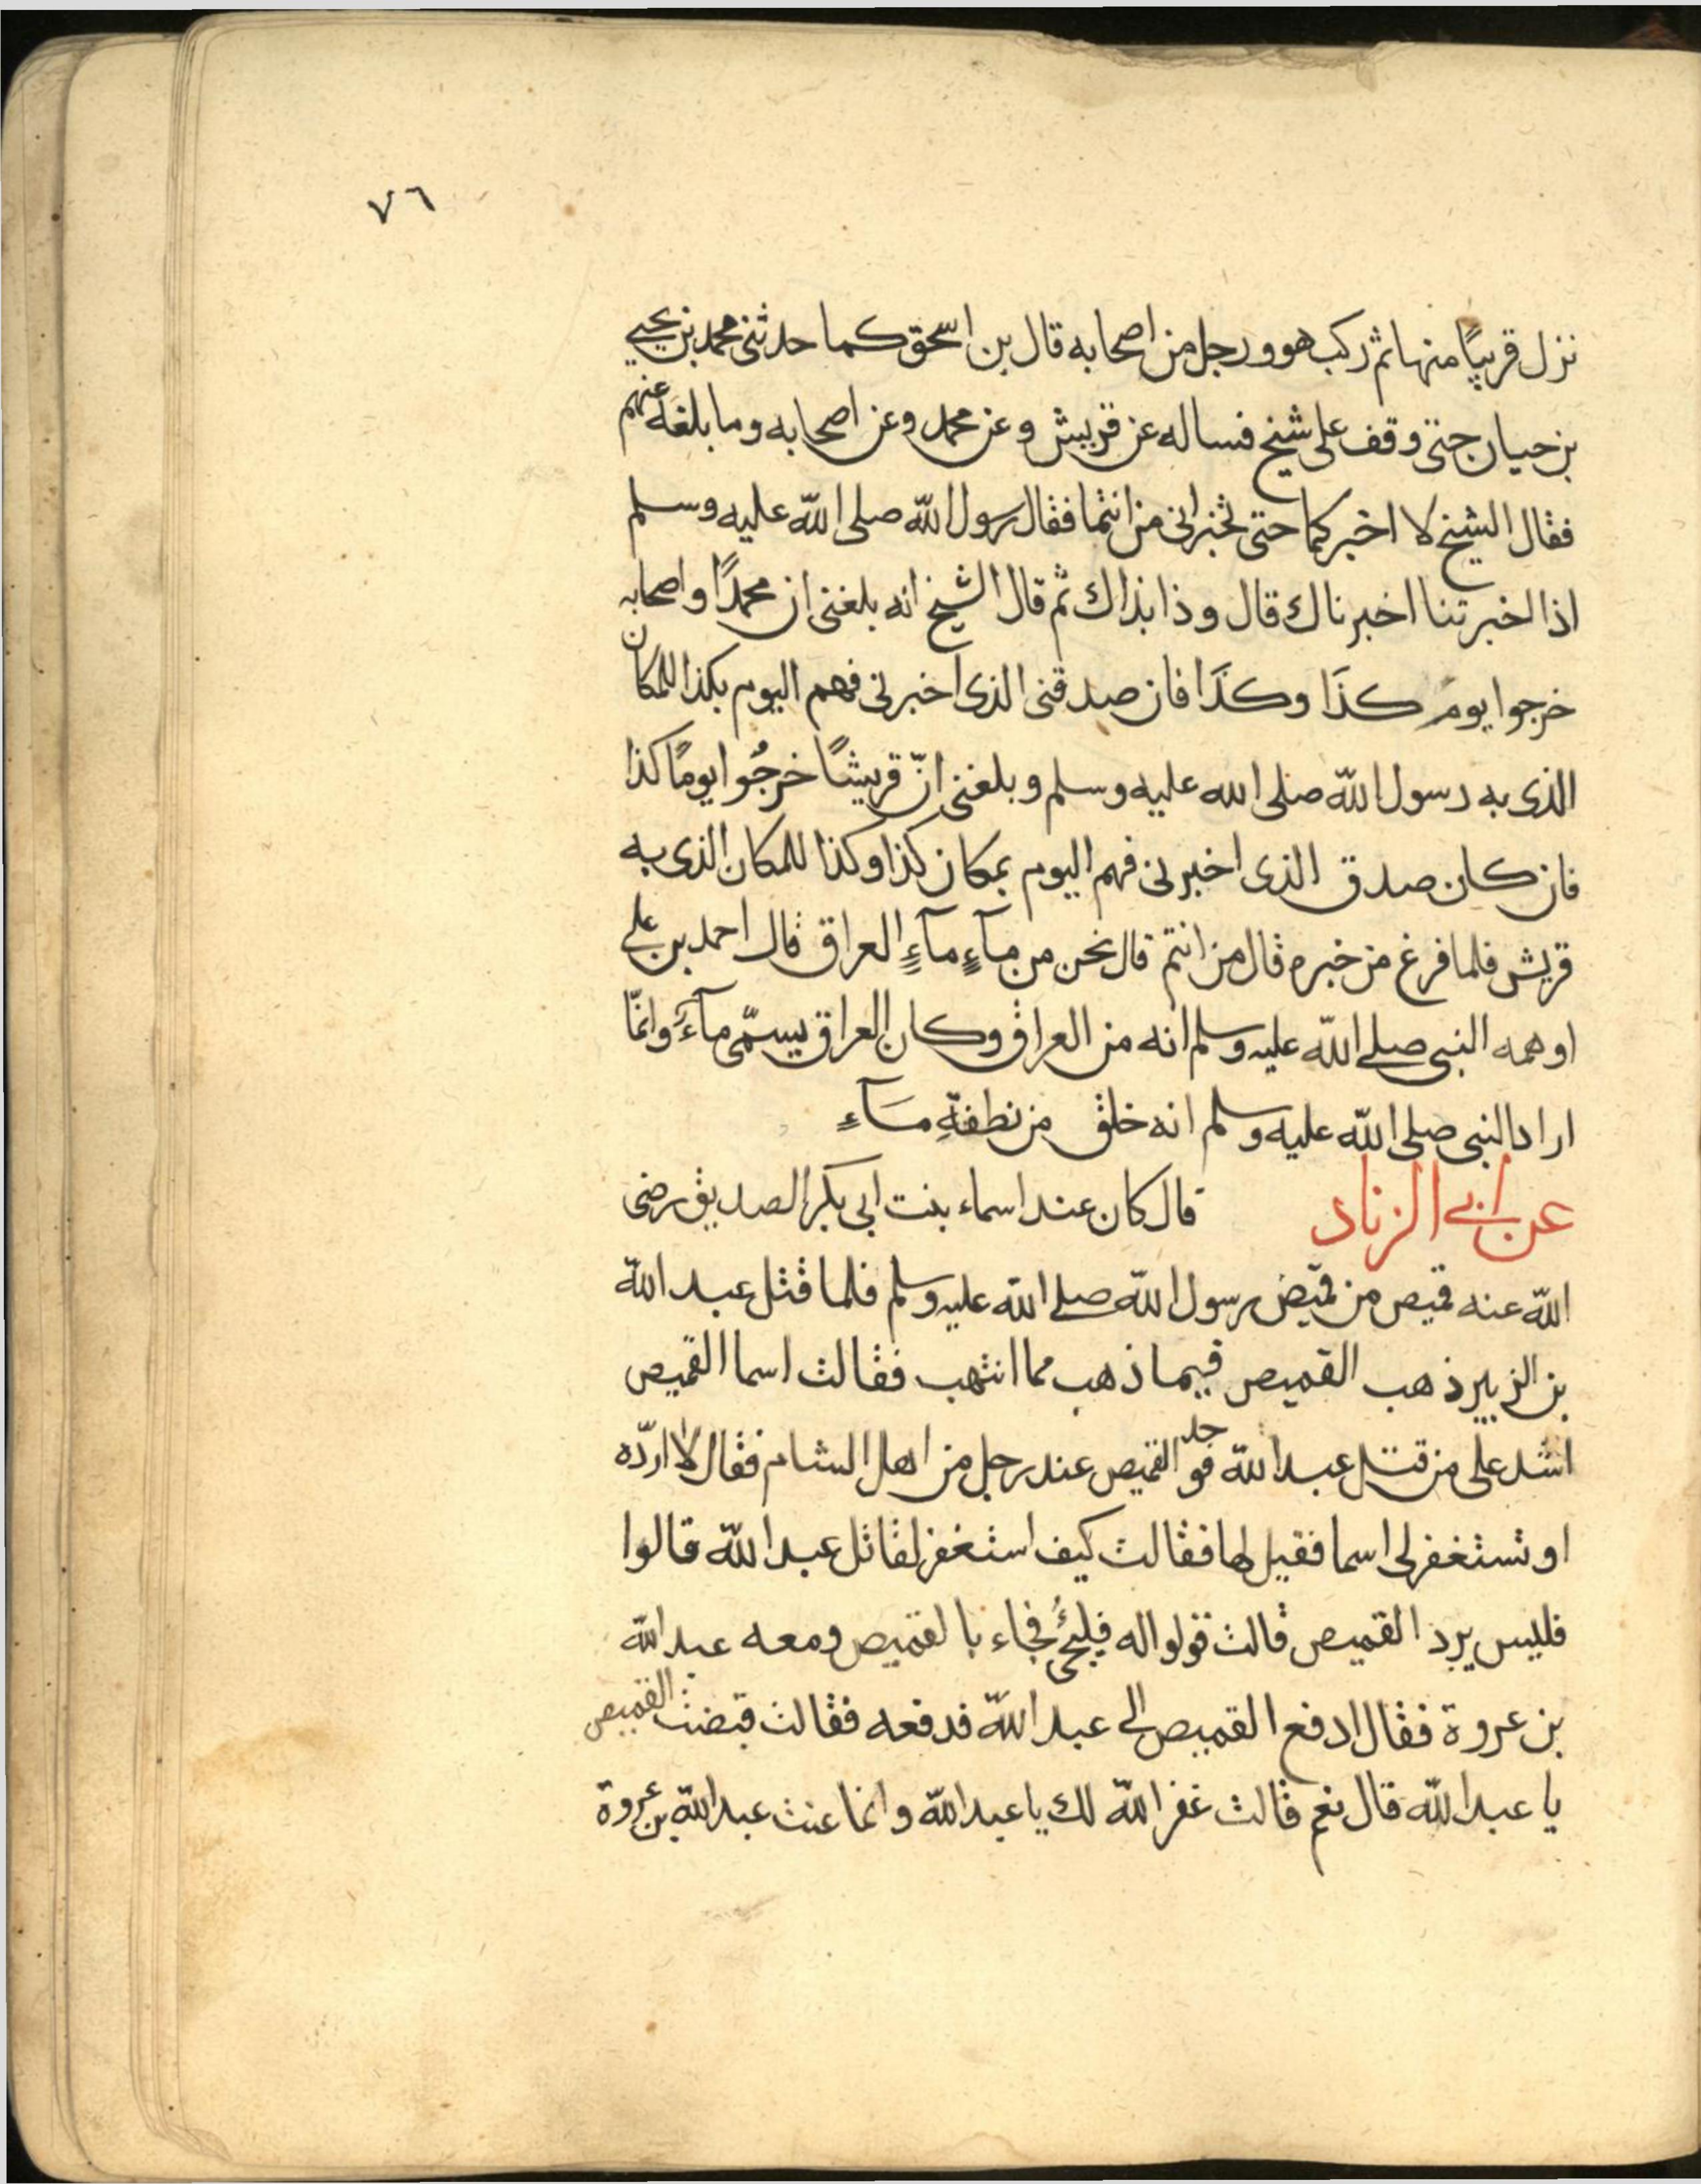 ٧٦
نزل قريبًا منها ثم ركب هو ورجل من اصحابه قال بن اسحق كما حدثني محمد بن يحيي
بن حيان حتى وقف على شيخ فساله عن قريش وعن محمد وعن اصحابه وما بلغه عنهم
فقال الشيخ لا اخبركما حتى تخبراني من انتما فقال رسول اللّه صلى اللّه عليه وسلم
اذا اخبرتنا اخبرناك قال وذا بذاك ثم قال الشيخ انه بلغني ان محمدًا واصحابه
خرجوا يومَ كذَا وكذَا فان صدقنى الذى اخبرنى فهم اليوم بكذا للمكان
الذى به رسول اللّه صلى الله عليه وسلم وبلغنى انّ قريشًا خرجُوا يومًا كذا
فان كان صدق الذى اخبرنى فهم اليوم بمكان كذا وكذا للمكان الذى به
قريش فلما فرغ من خبره قال من انتم قال نحن من مآءٍ مآءٍ العراق قال احمد بن علي
اوهمه النبى صلى اللّه عليه وسلم انه من العراق وكان العراق يسمّى مآءً وانمّا
اراد النبى صلى اللّه عليه وسلم انه خلق من نطفةِ مَآءٍ
عن ابي الزناد قال كان عند اسماء بنت ابى بكر الصديق رضى
اللّه عنه قميص من قميص رسول اللّه صلى اللّه عليه وسلم فلما قتل عبد اللّه
بن الزبير ذهب القميص فيما ذهب مما انتهب فقالت اسما القميص
اشد على من قتل عبد اللّه فوجد القميص عند رجل من اهل الشام فقال لا اردّه
او تستغفر لى اسما فقيل لها فقالت كيف استغفر لقاتل عبد اللّه قالوا
فليس يرد القميص قالت قولوا له فليجئُ فجاء بالقميص ومعه عبد اللّه
بن عروة فقال ادفع القميص الى عبد اللّه فدفعه فقالت قبضت القميص
يا عبد اللّه قال نعم قالت غفر اللّه لك يا عبد اللّه وانما عنت عبد اللّه بن عروة